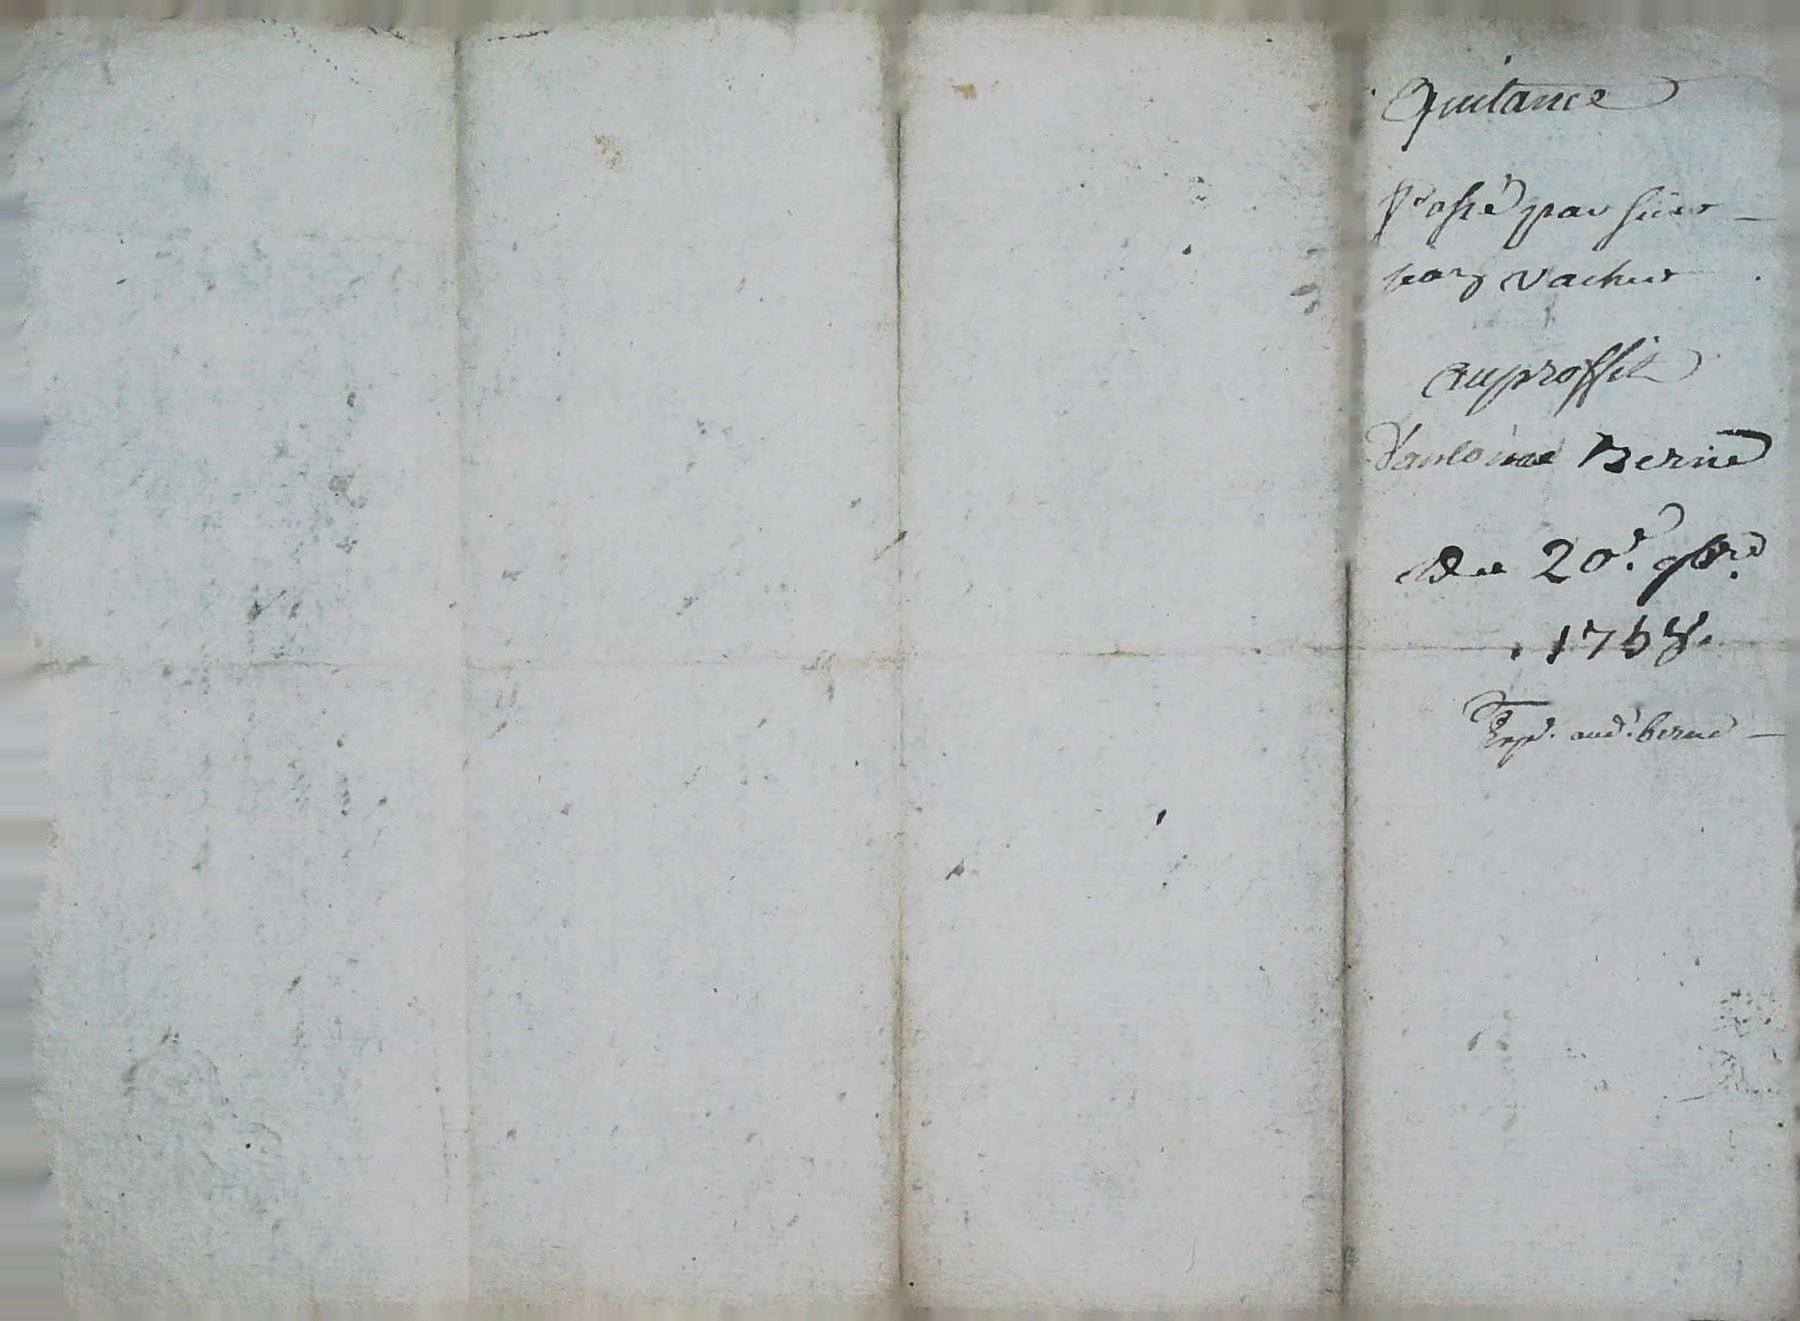 Quitance
Passé par sieur
jean vacher
auproffit
d'antoine Berne
Du 20.e 9bre
1758.
Exp. aud. berne